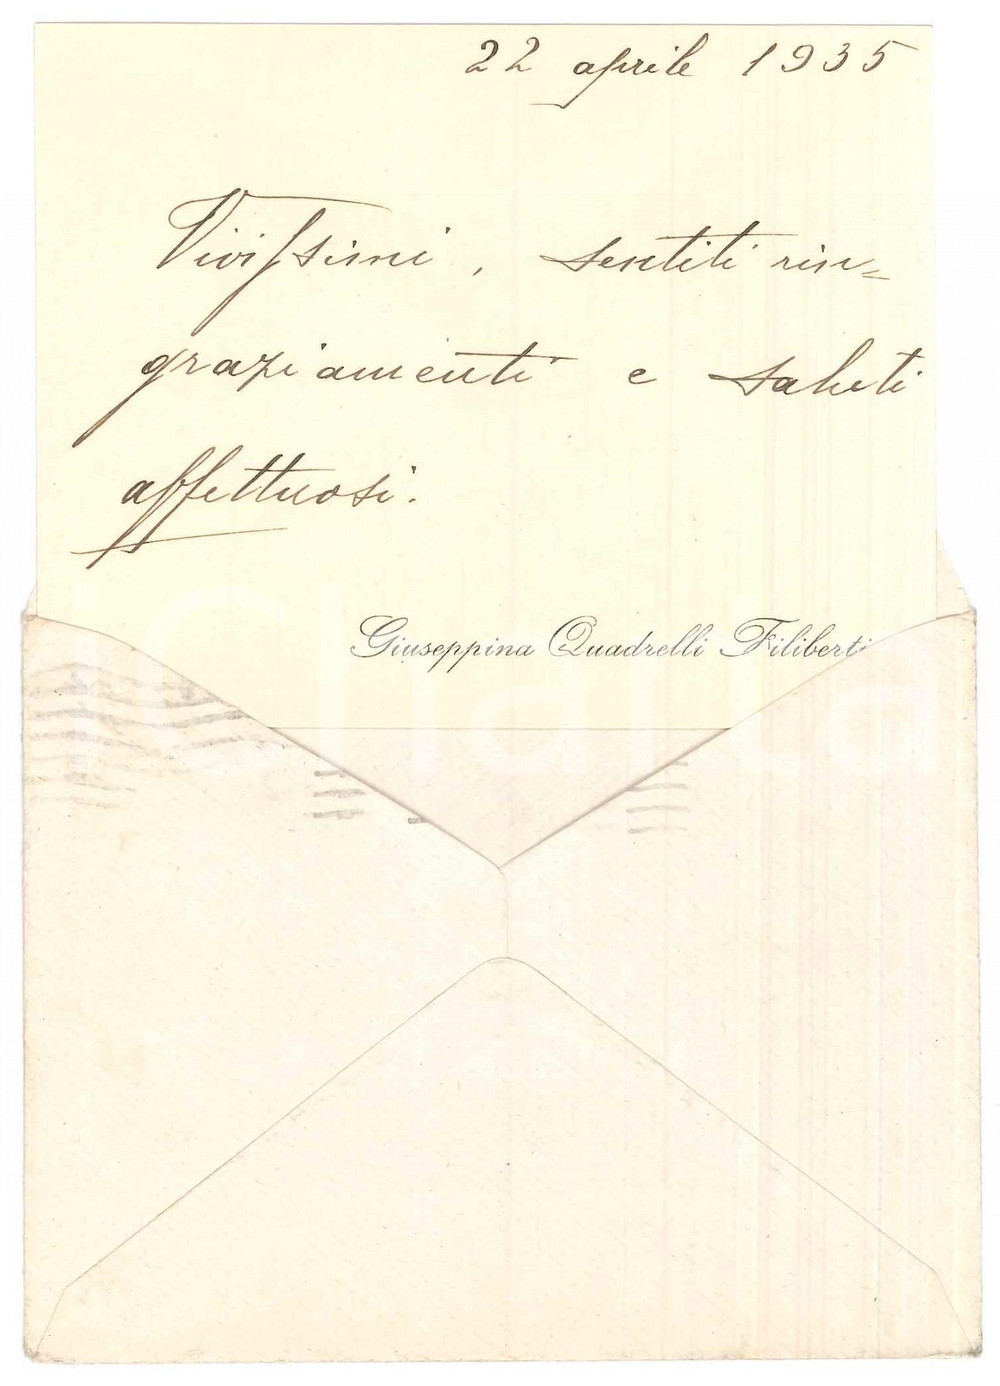 22 aprile 1935
Vivissimi, sentiti rin=
graziamenti e saluti
affettuosi.
Giuseppina Quadrelli Filiberti